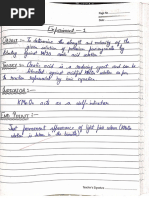 Page No.
Date
Experiment - 2
OBJECT :- To determine the strength and molarity of the
given solution of potassium permanganate by
titrating against M/20 oxalic acid solution.
THEORY :- Oxalic acid is a reducing agent and can be
titrated against acidified KMnO4 solution
redox reaction represented by ionic equation.
INDICATOR :-
KMnO4 acts as a self-indicator
END POINT :-
Just permanent appearance of light pink colour (KMnO4
solution is taken in the burette).
Teacher's Signature